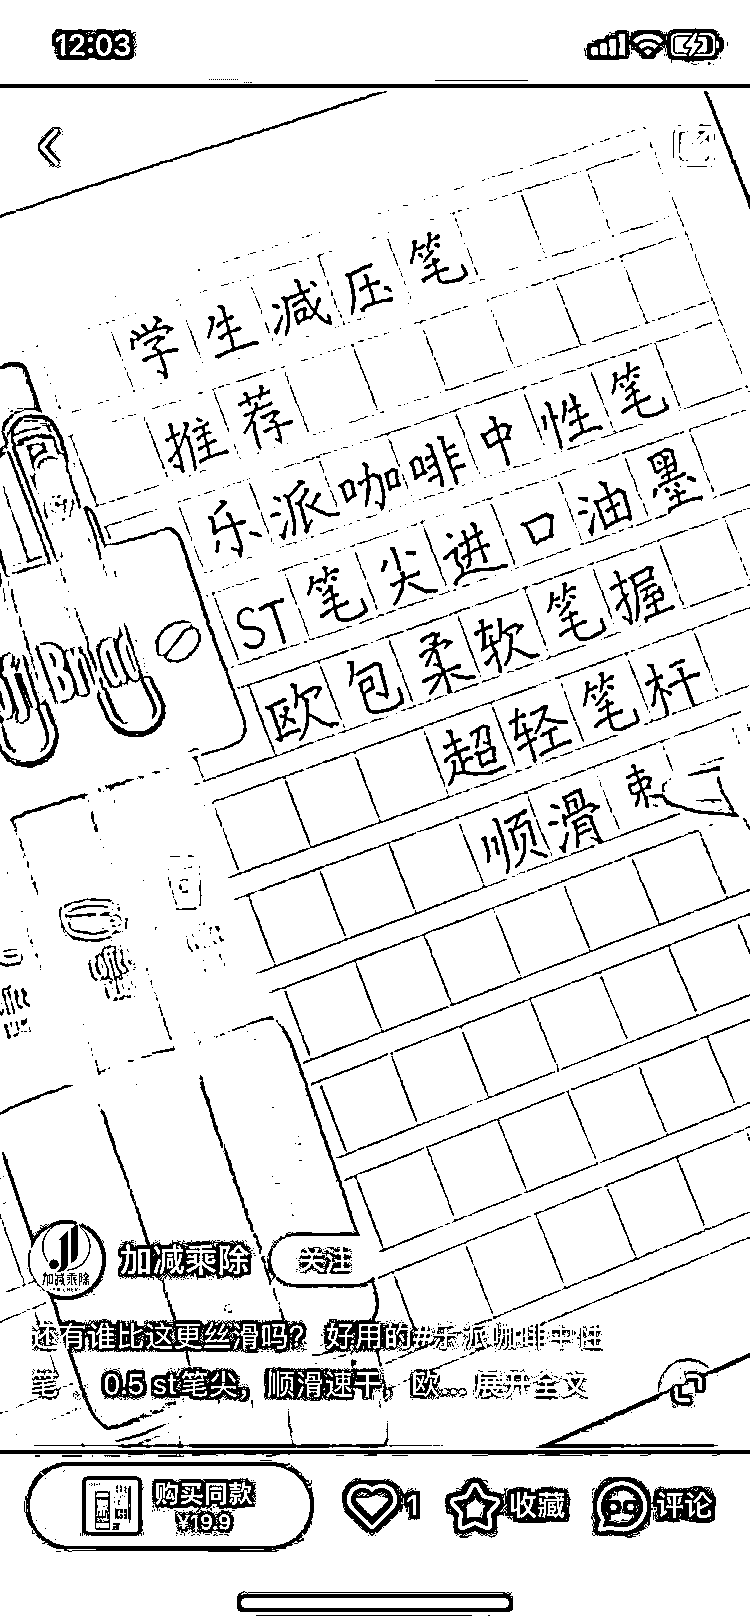 12:03
学生减压笔
推荐
乐派咖啡中性笔
ST笔尖进口油墨
欧包柔软笔握
超轻笔杆
顺滑
加减乘除
加减乘除
关注
还有谁比这更丝滑吗？好用的#乐派咖啡中性
笔 0.5 st笔尖，顺滑速干，欧... 展开全文
购买同款
¥19.9
1
收藏
评论